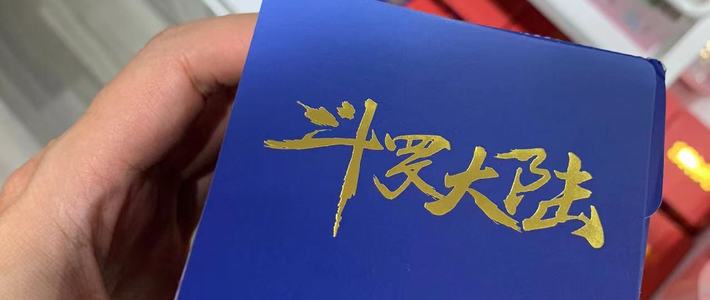 斗罗大陆